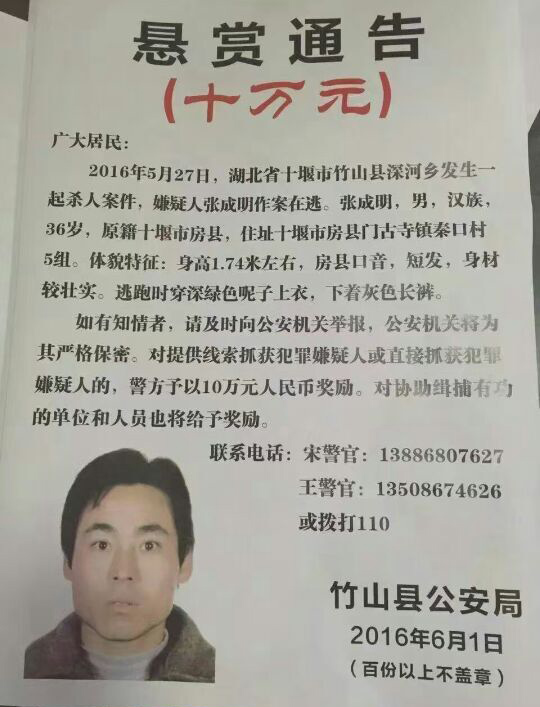 悬赏通告
(十万元)
广大居民：
2016年5月27日，湖北省十堰市竹山县深河乡发生一
起杀人案件，嫌疑人张成明作案在逃。张成明，男，汉族，
36岁，原籍十堰市房县，住址十堰市房县门古寺镇秦口村
5组。体貌特征：身高1.74米左右，房县口音，短发，身材
较壮实。逃跑时穿深绿色呢子上衣，下着灰色长裤。
如有知情者，请及时向公安机关举报，公安机关将为
其严格保密。对提供线索抓获犯罪嫌疑人或直接抓获犯罪
嫌疑人的，警方予以10万元人民币奖励。对协助缉捕有功
的单位和人员也将给予奖励。
联系电话：宋警官：13886807627
王警官：13508674626
或拨打110
竹山县公安局
2016年6月1日
（百份以上不盖章）